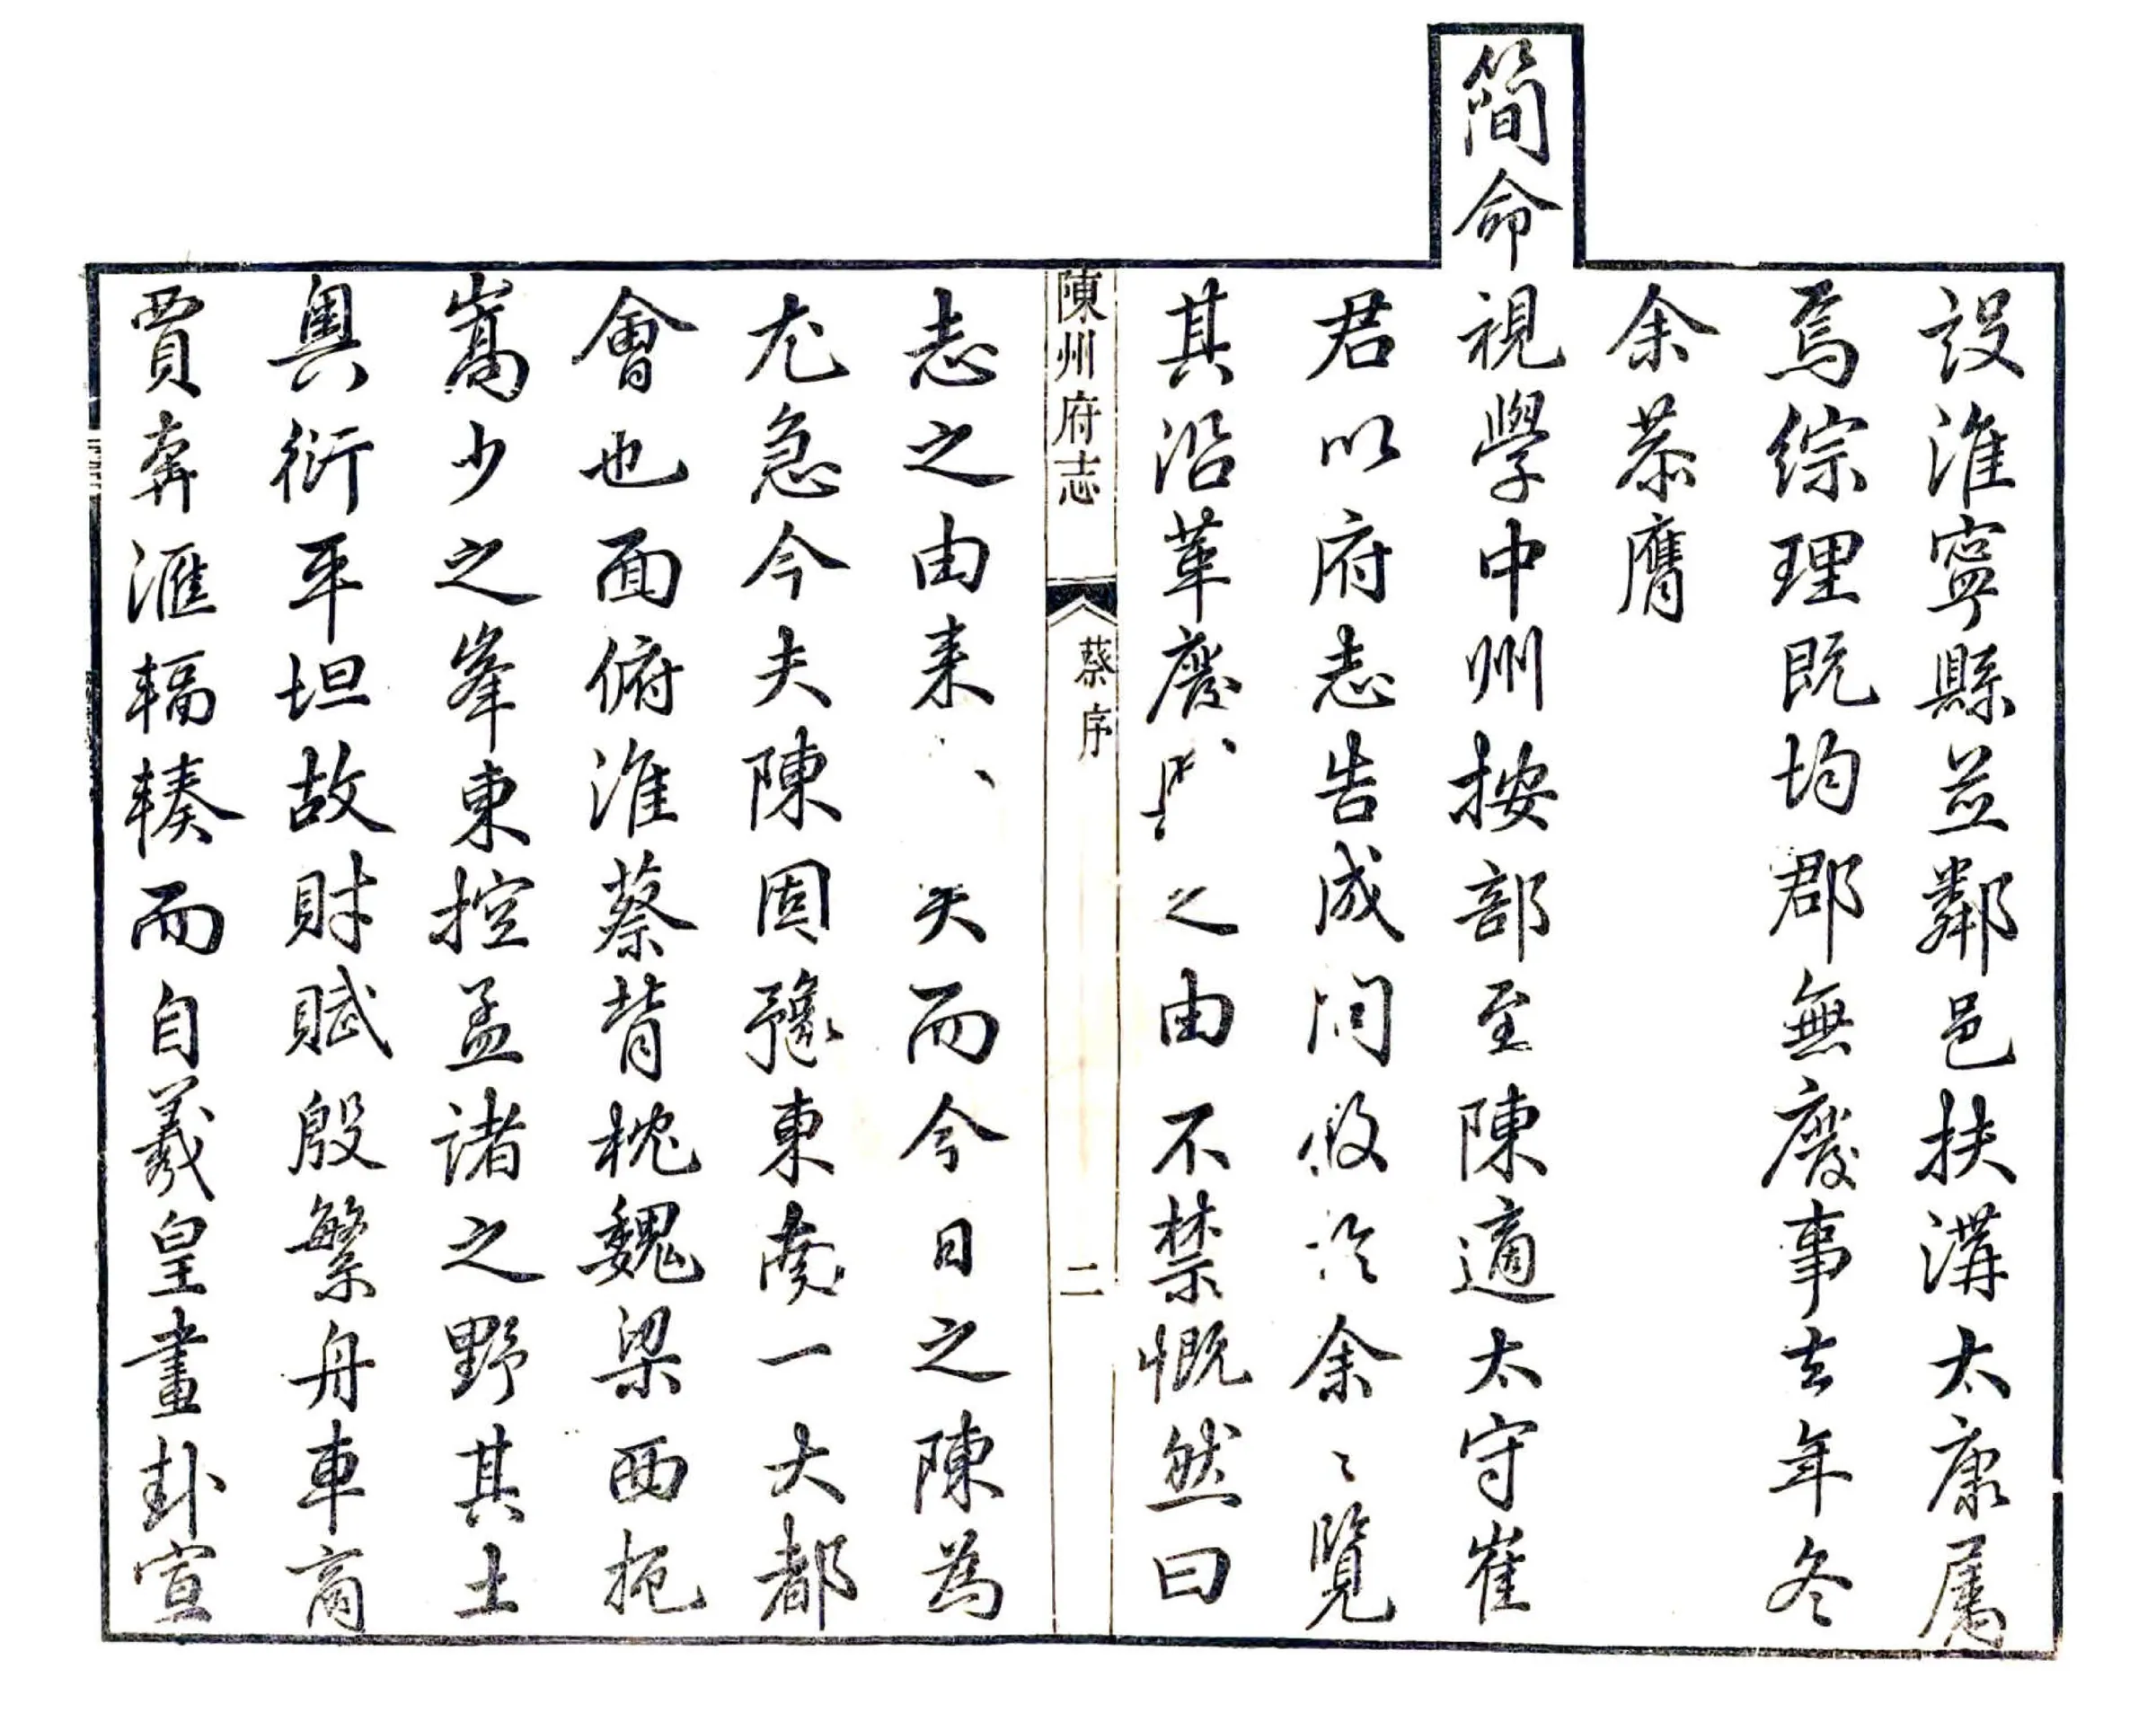 設淮寧縣並鄰邑扶溝太康属
焉綜理既均郡無廢事去年冬
余恭膺
簡命視學中州按部至陳適太守崔
君以府志告成問敘於余余覽
其沿革廢之由不禁慨然曰
陳州府志
蔡序
二
志之由来矣而今日之陳為
尤急今夫陳固豫東南一大都
會也面俯淮蔡背枕魏梁西扼
嵩少之峯東控孟諸之野其土
輿衍平坦故財賦殷繁舟車商
賈奔滙輻輳而自羲皇畫卦宣